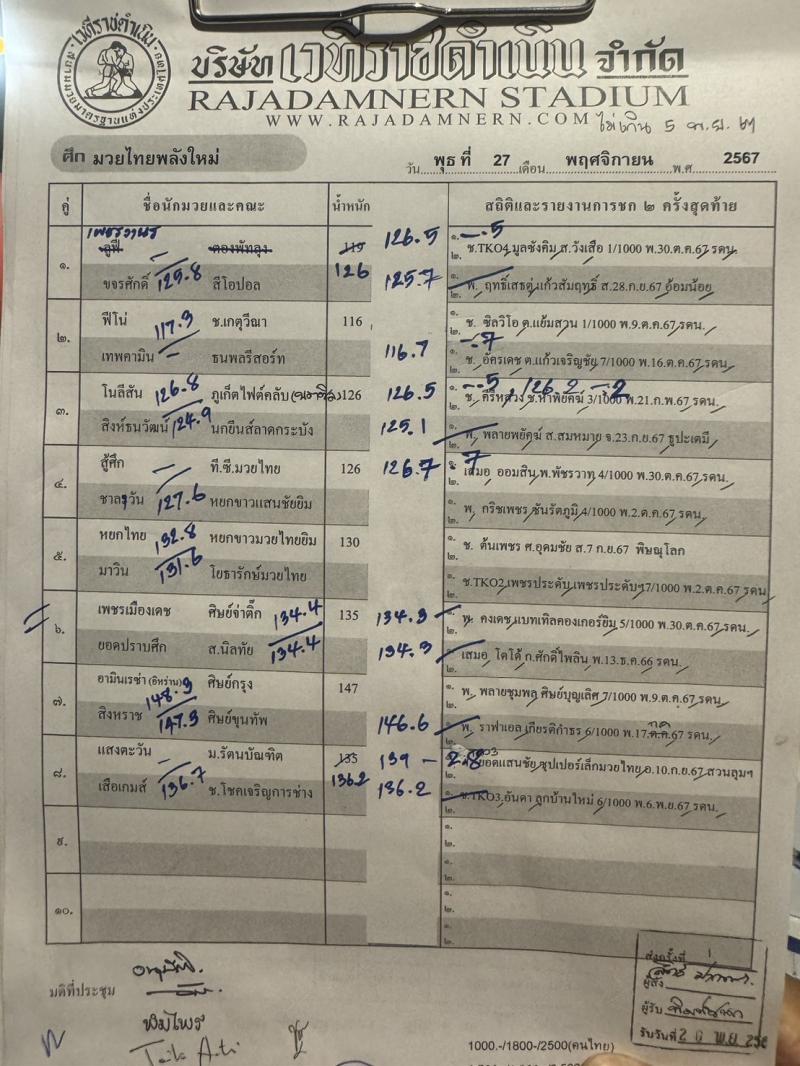 เวทีราชดำเนิน
บริษัท เวทีราชดำเนิน จำกัด
RAJADAMNERN STADIUM
WWW.RAJADAMNERN.COM
ไม่เกิน 5 พ.ย. 67
ศึก มวยไทยพลังใหม่
วัน พุธ ที่ 27 เดือน พฤศจิกายน พ.ศ 2567
คู่ ชื่อนักมวยและคณะ น้ำหนัก สถิติและรายงานการชก ๒ ครั้งสุดท้าย
๑. ลูฟี่ ดองพัทลุง 119 126.5 ๑. -.5
๒. ช.TKO4 มูลซังคิม ส.วังเสือ 1/1000 พ.30.ต.ค.67 รดน.
126
ขจรศักดิ์ 125.8 สีโอปอล 125.7 พ. ฤทธิ์เสธตู่ แก้วสัมฤทธิ์ ส.28.ก.ย.67 อ้อมน้อย
๒. ฟีโน่ 117.3 ช.เกตุวีณา 116 ช. ซิลวิโอ ต.แย้มสวน 1/1000 พ.9.ต.ค.67 รดน.
เทพคามิน ธนพลรีสอร์ท 116.7 -.7 ช. อัครเดช ต.แก้วเจริญชัย 7/1000 พ.16.ต.ค.67 รดน.
๓. โนลีสัน 126.8 ภูเก็ตไฟต์คลับ 126 126.5 -.5 126.2 -.2
ช. คีรีหลวง ช.ห้าพยัคฆ์ 3/1000 พ.21.ก.พ.67 รดน.
สิงห์ธนวัฒน์ 124.9 นกยีนส์ลาดกระบัง 125.1 พ. พลายพยัคฆ์ ส.สมหมาย จ.23.ก.ย.67 ธูปะเตมี
๔. สู้ศึก ที.ซี.มวยไทย 126 126.7 -.7 เสมอ ออมสิน พ.พัชรวาท 4/1000 พ.30.ต.ค.67 รดน.
ชาละวัน 127.6 หยกขาวแสนชัยยิม พ. กริชเพชร ชันรัตภูมิ 4/1000 พ.2.ต.ค.67 รดน.
๕. หยกไทย 132.8 หยกขาวมวยไทยยิม 130 ช. ต้นเพชร ศ.อุดมชัย ส.7 ก.ย.67 พิษณุโลก
มาวิน 131.6 โยธารักษ์มวยไทย ช.TKO2 เพชรประดับ เพชรประดับฯ7/1000 พ.2.ต.ค.67 รดน
๖. เพชรเมืองเดช ศิษย์จ่าติ๊ก 134.4 135 134.3 พ. คงเดช แบทเทิลคองเกอร์ยิม 5/1000 พ.30.ต.ค.67 รดน.
ยอดปราบศึก ส.นิลทัย 134.4 134.3 เสมอ โตโต้ ก.ศักดิ์ไพลิน พ.13.ธ.ค.66 รดน.
๗. อามินเรซ่า (อิหร่าน) 148.3 ศิษย์กรุง 147 พ. พลายชุมพล ศิษย์บุญเลิศ 7/1000 พ.9.ต.ค.67 รดน.
สิงหราช 147.3 ศิษย์ขุนทัพ 146.6 พ. ราฟาเอล เกียรติกำธร 6/1000 พ.17.ต.ค.67 รดน.
๘. แสงตะวัน ม.รัตนบัณฑิต 135 139 - 2.8 ยอดแสนชัย ซุปเปอร์เล็กมวยไทย อ.10.ก.ย.67 สวนลุมฯ
136.2
เสือเกมส์ 136.7 ช.โชคเจริญการช่าง 136.2 ช.TKO3 อันดา ลูกบ้านใหม่ 6/1000 พ.6.พ.ย.67 รดน.
๙. ๑.
๒.
๑.
๒.
๑๐. ๑.
๒.
๑.
๒.
มติที่ประชุม
ส่งครั้งที่ 1
ผู้ส่ง
ผู้รับ
รับวันที่ 20 พ.ย. 256
1000.-/1800-/2500(คนไทย)